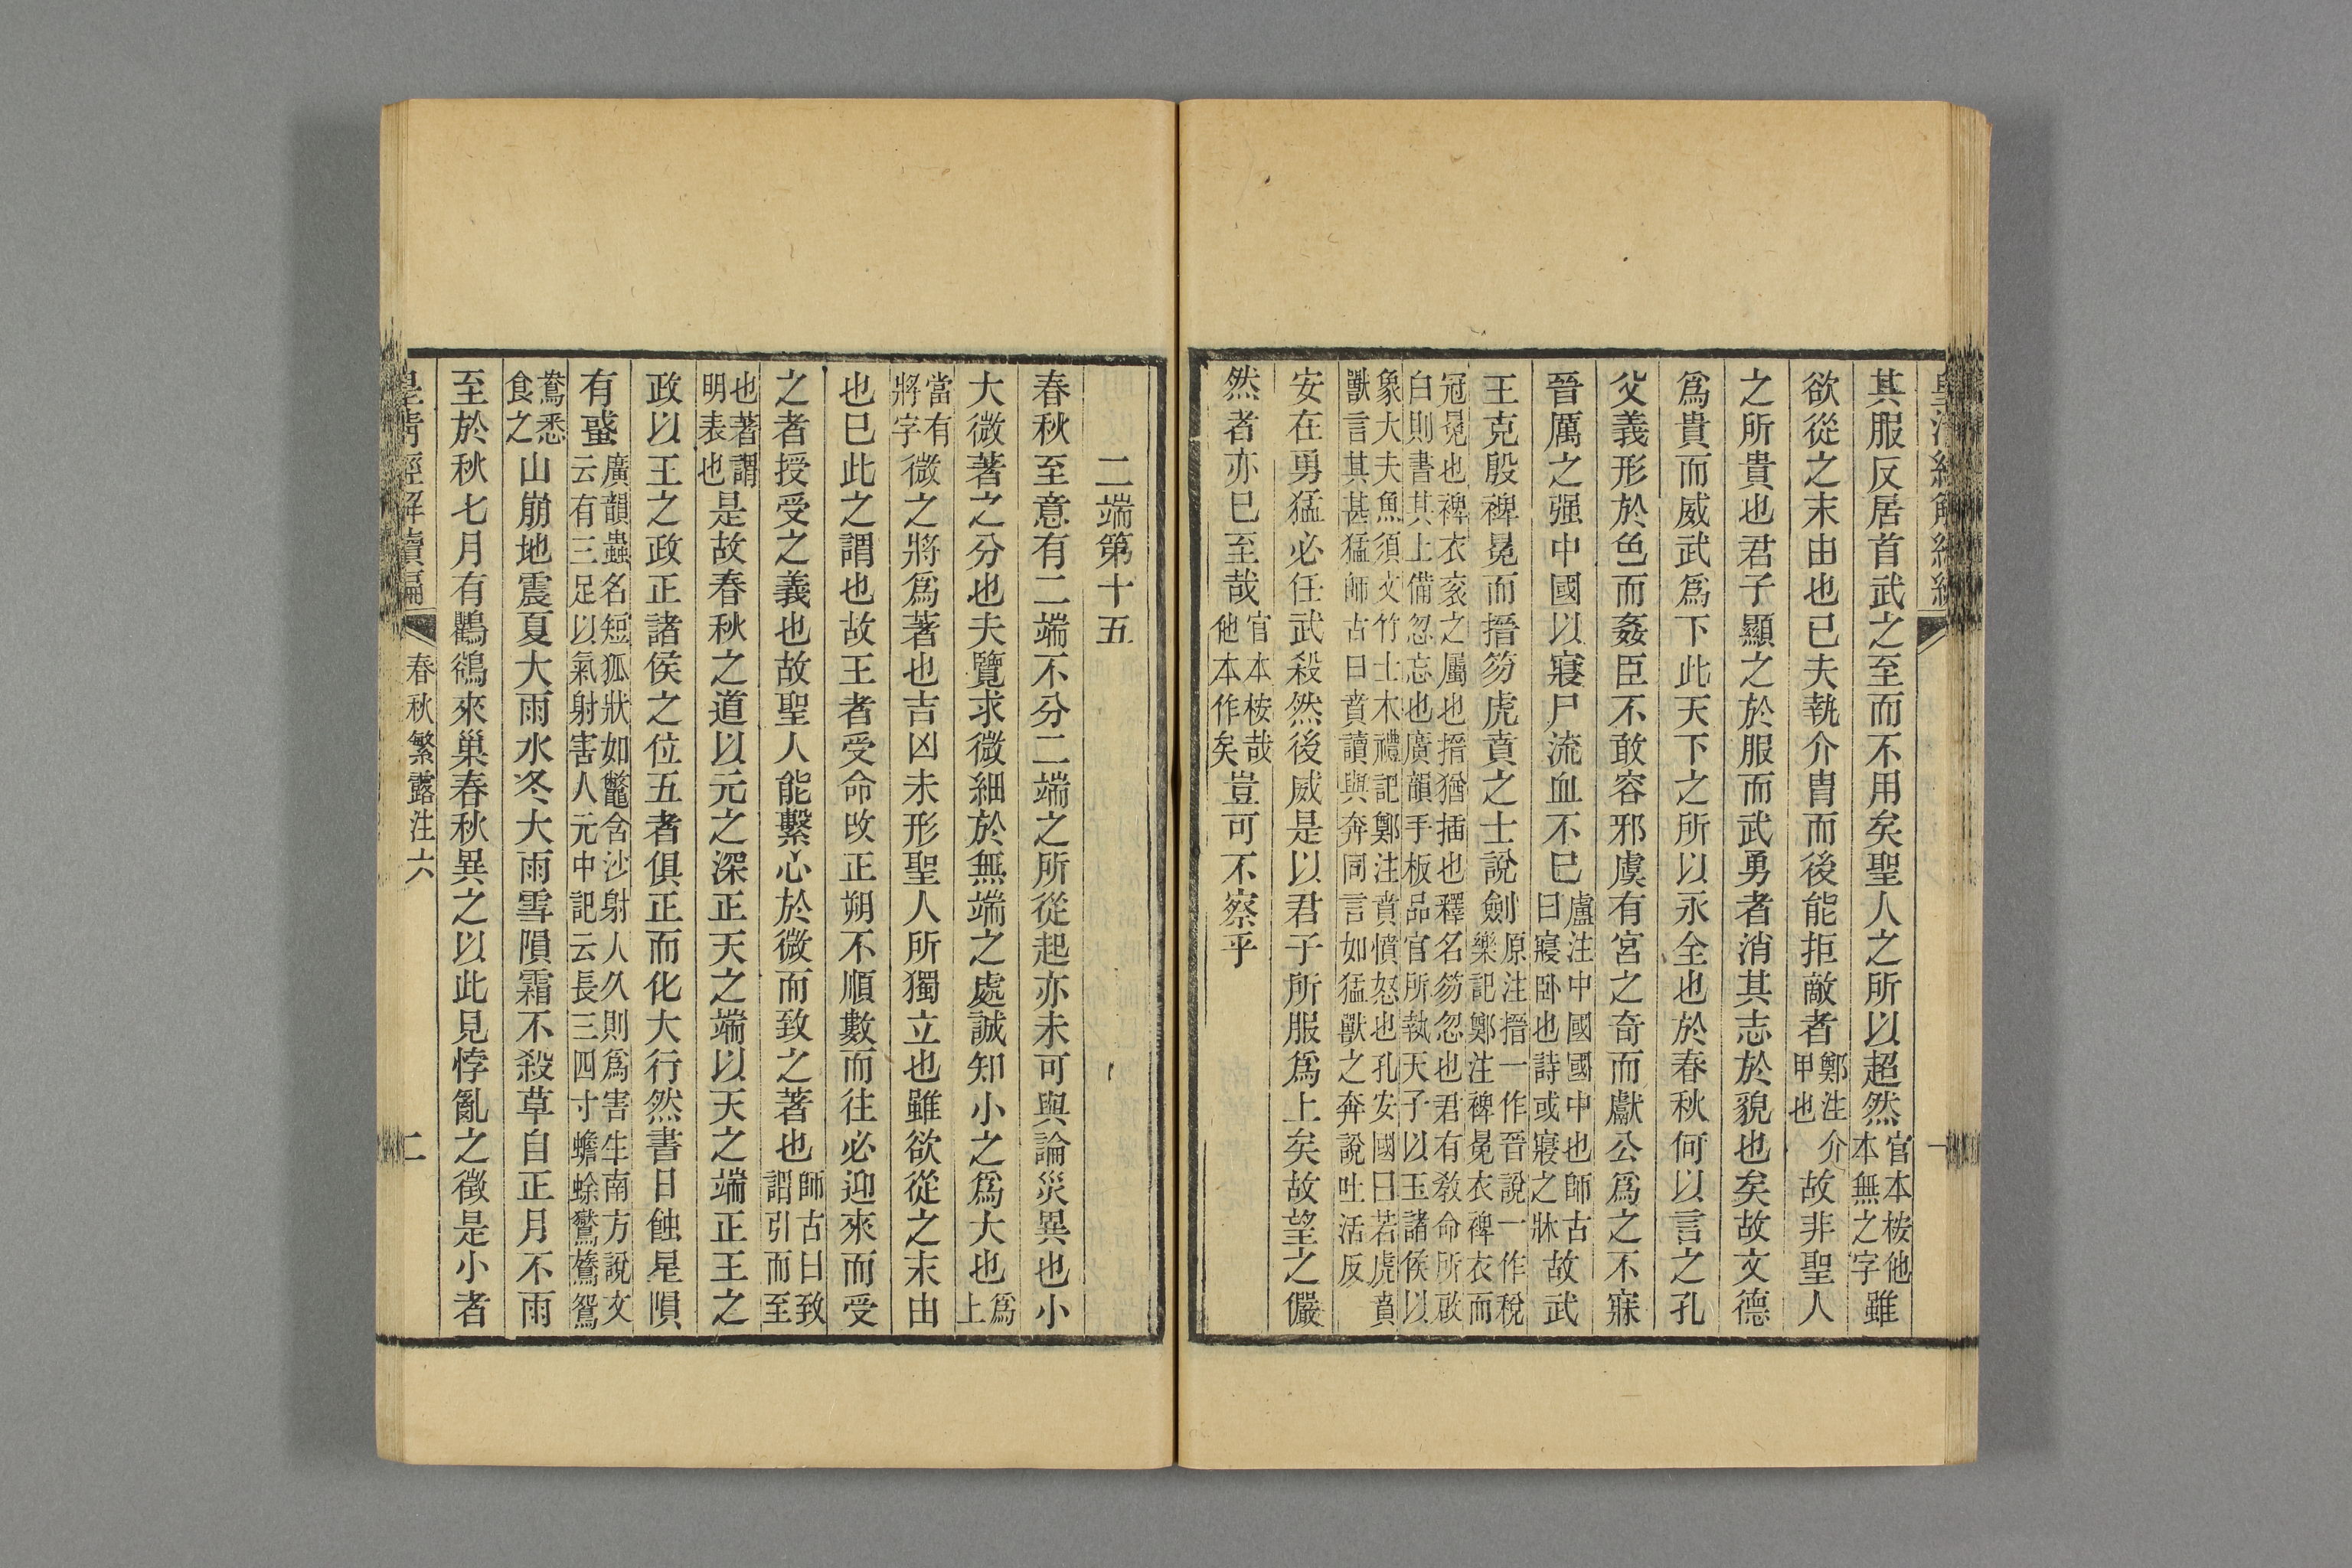 皇清經解續編
其服反居首武之至而不用矣聖人之所以超然官本桉他本無之字雖
欲從之末由也已夫執介胄而後能拒敵者鄭注介甲也故非聖人
之所貴也君子顯之於服而武勇者消其志於貌也矣故文德
爲貴而威武爲下此天下之所以永全也於春秋何以言之孔
父義形於色而姦臣不敢容邪虞有宮之奇而獻公爲之不寐
晉厲之强中國以寢尸流血不已盧注中國國中也師古曰寢卧也詩或寢之牀故武
王克殷裨冕而搢笏虎賁之士說劍原注搢一作晉說一作稅樂記鄭注裨冕衣裨衣而
冠冕也裨衣衮之屬也搢猶插也釋名笏忽也君有敎命所啟
白則書其上備忽忘也廣韻手板品官所執天子以玉諸侯以
象大夫魚須文竹士木禮記鄭注賁憤怒也孔安國曰若虎賁
獸言其甚猛師古曰賁讀與奔同言如猛獸之奔說吐活反
安在勇猛必任武殺然後威是以君子所服爲上矣故望之儼
然者亦已至哉官本桉哉他本作矣豈可不察乎
一
二端第十五
春秋至意有二端不分二端之所從起亦未可與論災異也小
大微著之分也夫覽求微細於無端之處誠知小之爲大也爲上
當有將字微之將爲著也吉凶未形聖人所獨立也雖欲從之末由
也已此之謂也故王者受命改正朔不順數而往必迎來而受
之者授受之義也故聖人能繫心於微而致之著也師古曰致謂引而至
也著謂明表也是故春秋之道以元之深正天之端以天之端正王之
政以王之政正諸侯之位五者俱正而化大行然書日蝕星隕
有蜮廣韻蟲名短狐狀如鼈含沙射人久則爲害生南方說文云有三足以氣射害人元中記云長三四寸蟾蜍鷩鷟鴛
鴦悉食之山崩地震夏大雨水冬大雨雪隕霜不殺草自正月不雨
至於秋七月有鸛鵒來巢春秋異之以此見悖亂之徵是小者
皇清經解續編
春秋繁露注六
二